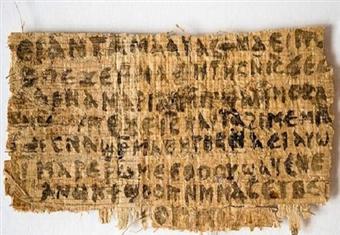 ⲉⲓ ⲁⲛ ⲧⲁⲙⲁⲁⲩ ⲁⲥϯ ⲛⲁⲉⲓ ⲡ
ⲡⲉϫⲉ ⲙⲙⲁⲑⲏⲧⲏⲥ ⲛⲓⲥ ϫⲉ ⲥ
ⲁⲣⲛⲁ ⲙⲁⲣⲓⲁⲙ ⲙⲡϣⲁ ⲙⲙⲟⲥ ⲁ
ⲡⲉϫⲉ ⲓⲥ ⲛⲁⲩ ⲧⲁϩⲓⲙⲉ ⲙⲛ
ⲥⲛⲁϣⲣⲙⲁⲑⲏⲧⲏⲥ ⲛⲁⲉⲓ ⲁⲩⲱ
ⲓ ⲙⲁⲣⲉⲣⲱⲙⲉ ⲉⲑⲟⲟⲩ ϣⲁϥⲉ ⲛⲉ
ⲁⲛⲟⲕ ϯϣⲟⲟⲡ ⲛⲙⲙⲁⲥ ⲉⲧⲃⲉ ⲡ